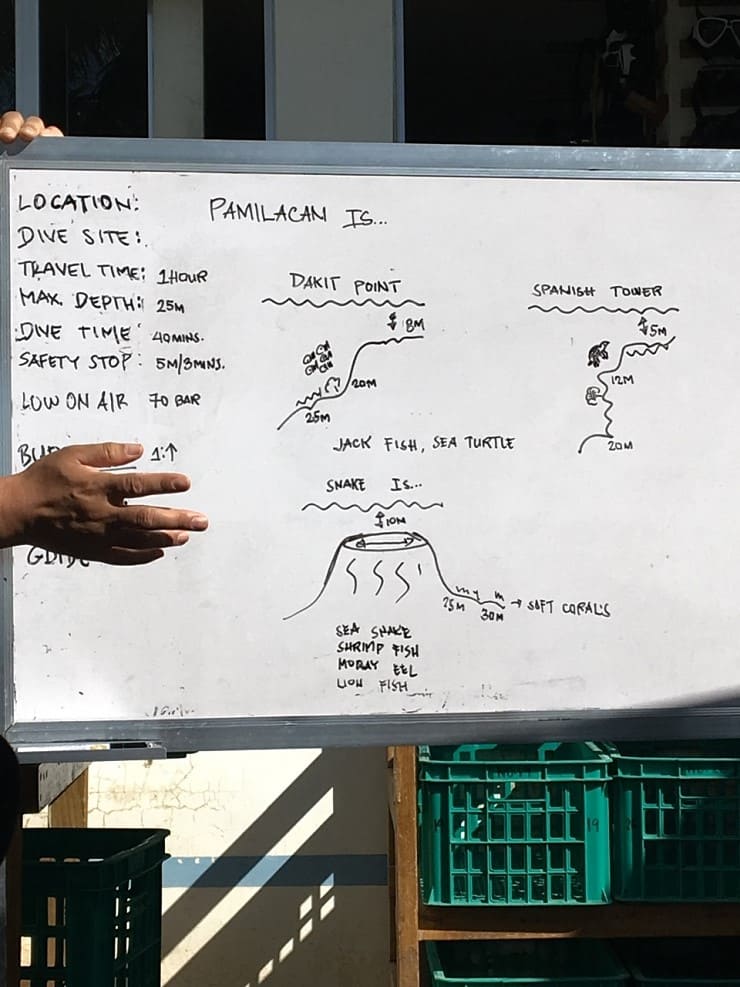 LOCATION:
PAMILACAN IS...
DIVE SITE:
TRAVEL TIME: 1HOUR
MAX. DEPTH: 25M
DIVE TIME: 40MINS.
SAFETY STOP: 5M/3MINS.
LOW ON AIR 70 BAR
1:↑
DAKIT POINT
8M
20M
25M
SPANISH TOWER
5M
12M
20M
JACK FISH, SEA TURTLE
SNAKE IS...
10M
25M
30M → SOFT CORALS
SEA SNAKE
SHRIMP FISH
MORAY EEL
LION FISH
19